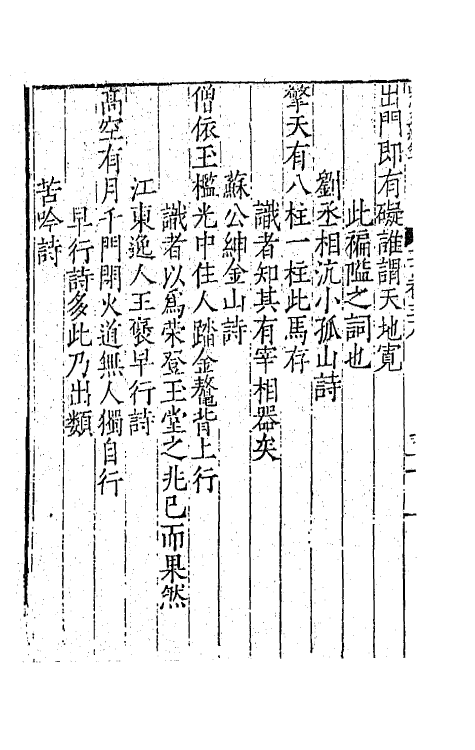 出門即有礙誰謂天地寛
此褊隘之詞也
劉丞相沆小孤山詩
擎天有八柱一柱此焉存
識者知其有宰相器矣
蘇公紳金山詩
僧依玉檻光中住人踏金鼇背上行
識者以爲榮登玉堂之兆已而果然
江東逸人王褒早行詩
高空有月千門閉火道無人獨自行
早行詩多此乃出類
苦吟詩